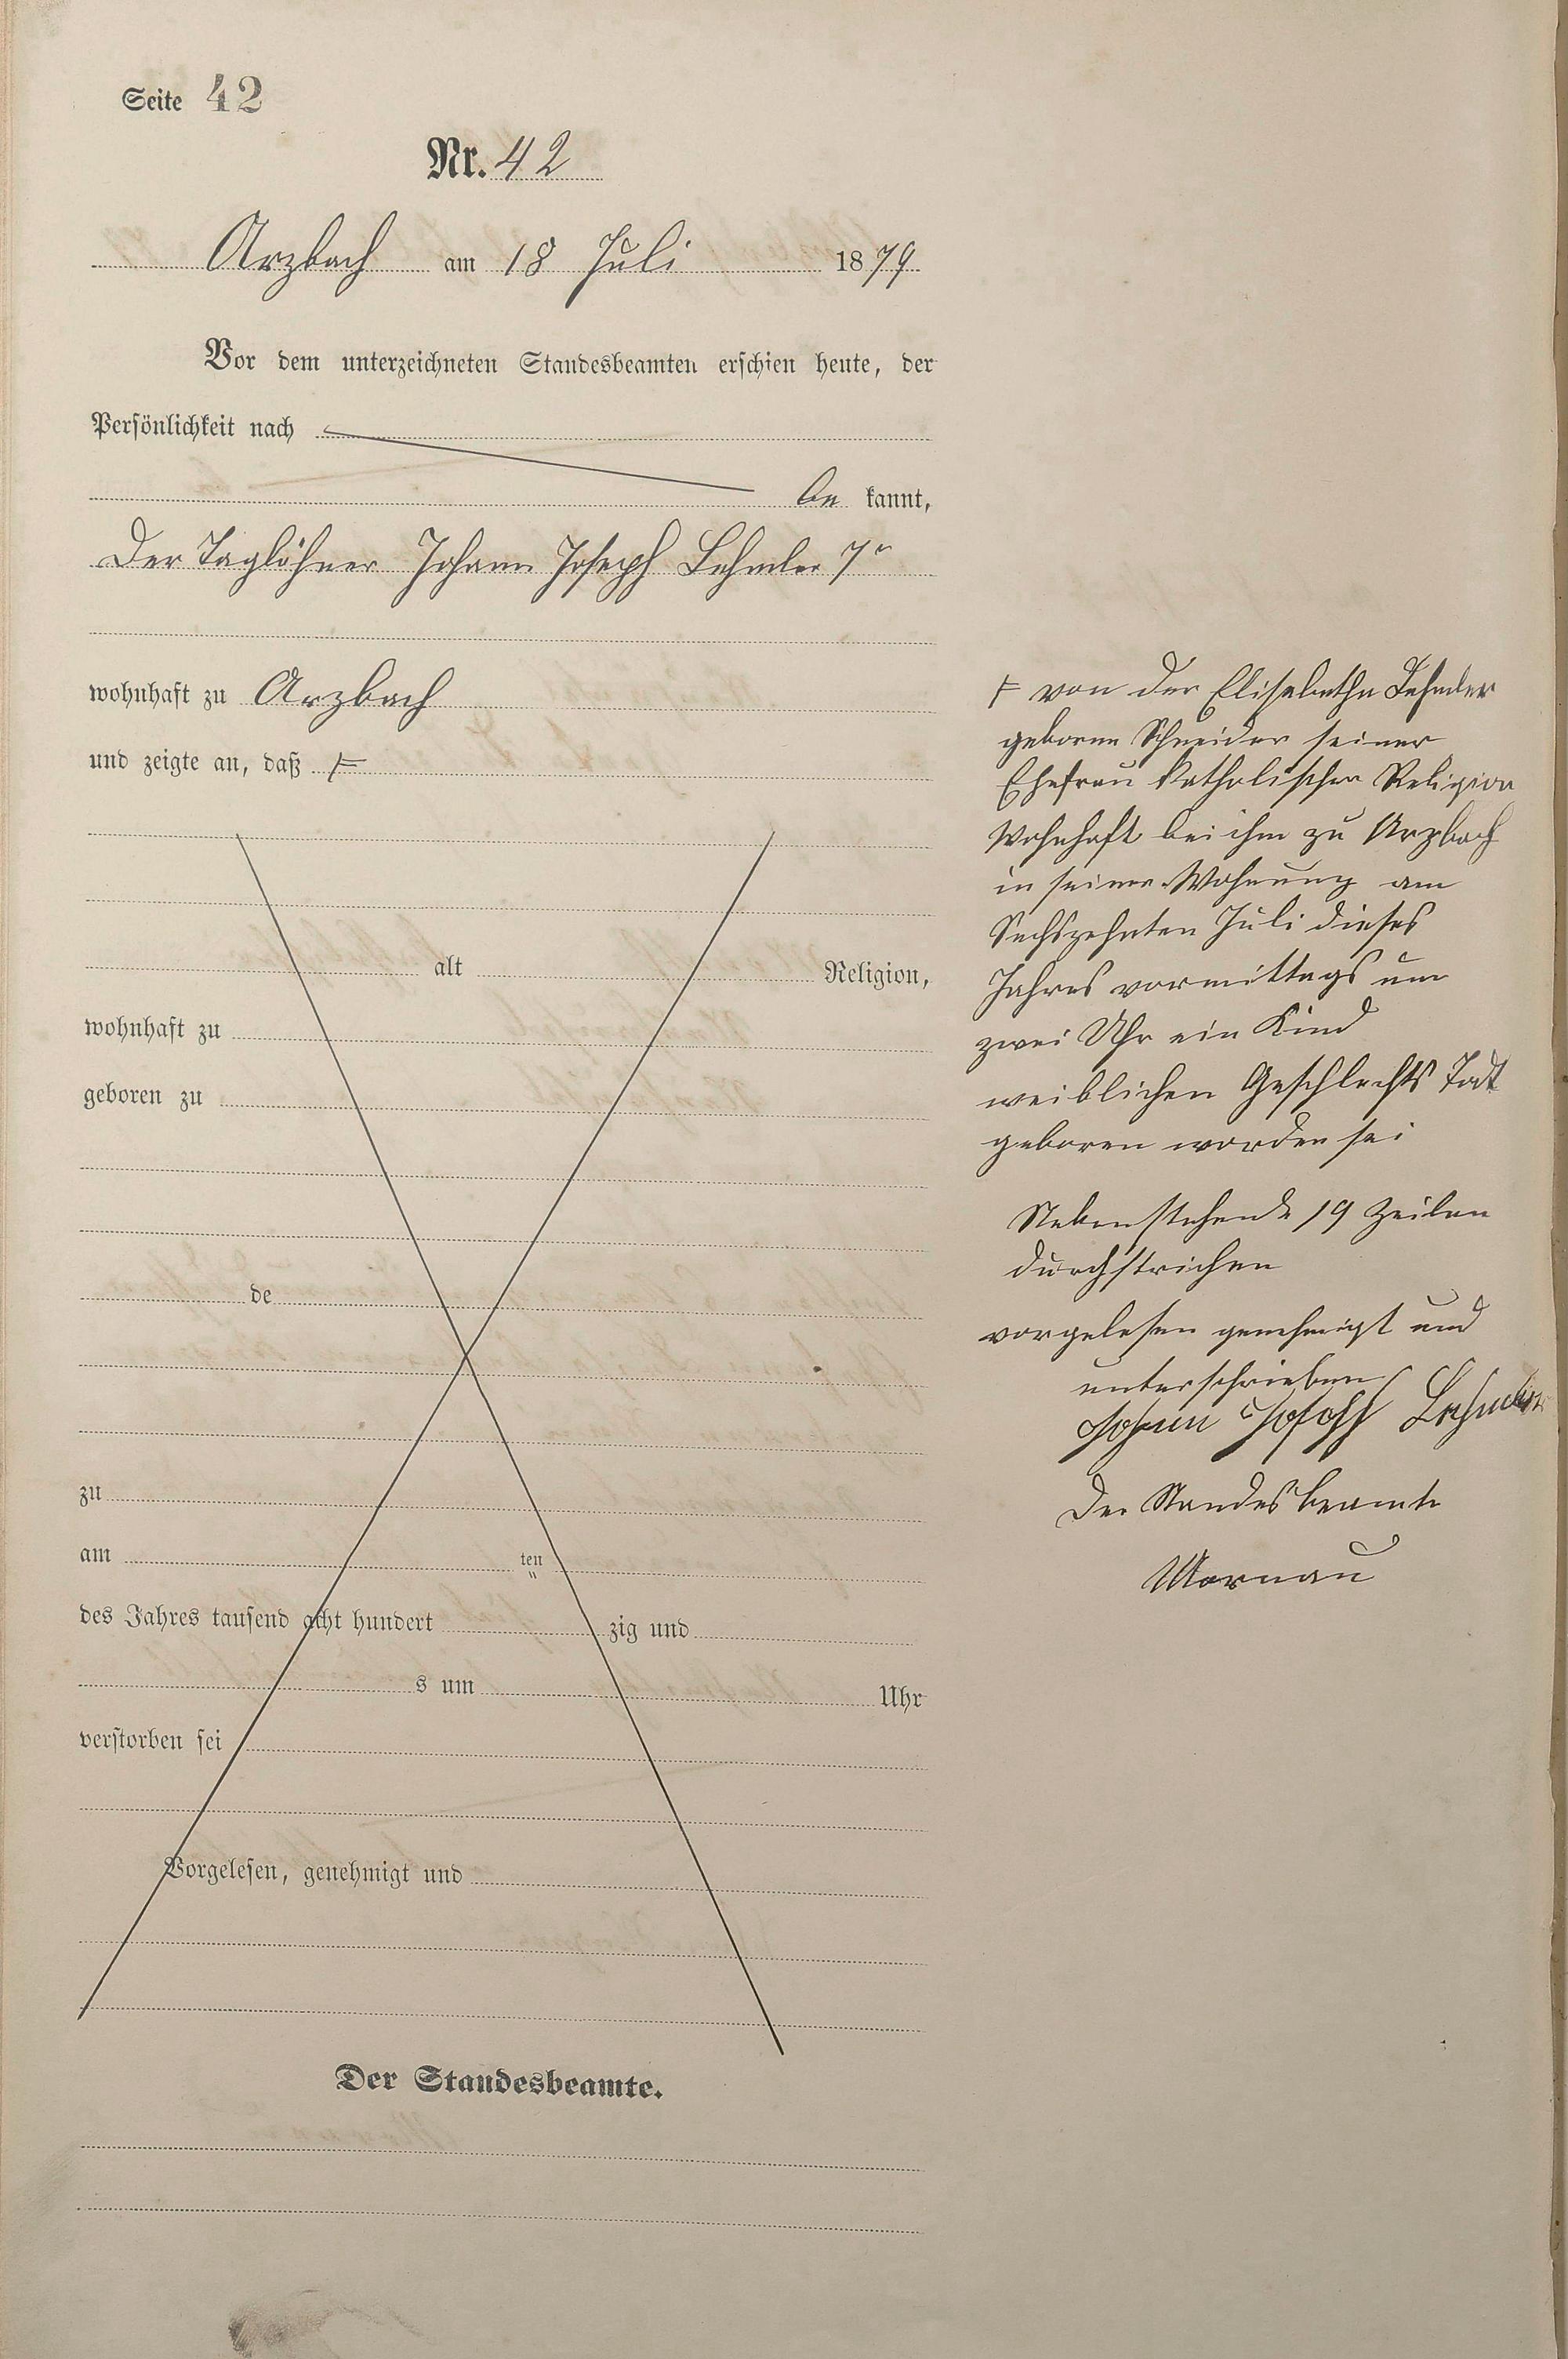 Seite 42
Nr. 42
Arzbach am 18 Juli 1879.
Vor dem unterzeichneten Standesbeamten erschien heute, der
Persönlichkeit nach
be kannt,
Der Taglöhner Johann Joseph Lehmler 7r
wohnhaft zu Arzbach
und zeigte an, daß ⊬
alt Religion,
wohnhaft zu
geboren zu
de
zu
am ten
des Jahres tausend acht hundert zig und
s um Uhr
verstorben sei
Vorgelesen, genehmigt und
Der Standesbeamte.
⊬ von der Elisabetha Lehmler
geborne Schneider seiner
Ehefrau katholischer Religion
Wohnhaft bei ihm zu Arzbach
in seiner Wohnung am
Sechszehnten Juli dieses
Jahres vormittags um
zwei Uhr ein Kind
weiblichen Geschlechts Todt
geboren worden sei
Nebenstehende 19 Zeilen
durchstrichen
vorgelesen genehmigt und
unterschrieben
Johann Joseph Lehmler
Der Standesbeamte